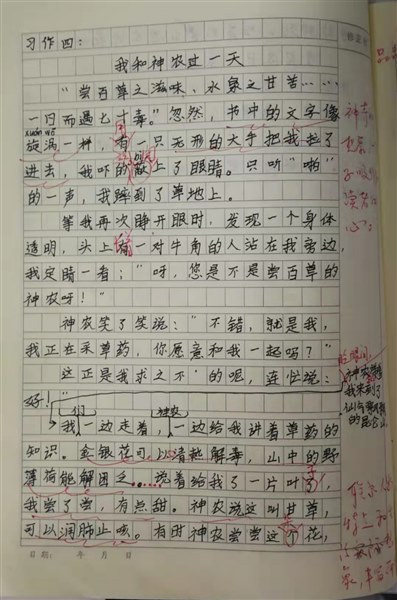 习作四：
我和神农过一天
“尝百草之滋味，水泉之甘苦……
一日而遇七十毒。”忽然，书中的文字像
xuán wō
旋涡一样，有一只无形的大手把我拉了
进去，我吓的上了眼睛。只听“啪”
的一声，我踩到了草地上。
等我再次睁开眼时，发现一个身体
透明，头上有一对牛角的人站在我旁边，
我定睛一看：“呀，您是不是尝百草的
神农呀！”
神农笑了笑说：“不错，就是我，
我正在采草药，你愿意和我一起吗？”
这正是我求之不的呢，连忙说：
好！”
们 神农
我一边走着，一边给我讲着草药的
知识。金银花可以清热解毒，山中的野
薄荷能解困乏……说着给了我一片叶子，
我尝了尝，有点甜。神农说这叫甘草，
可以润肺止咳。有时神农尝尝这个花，
日期： 年 月 日